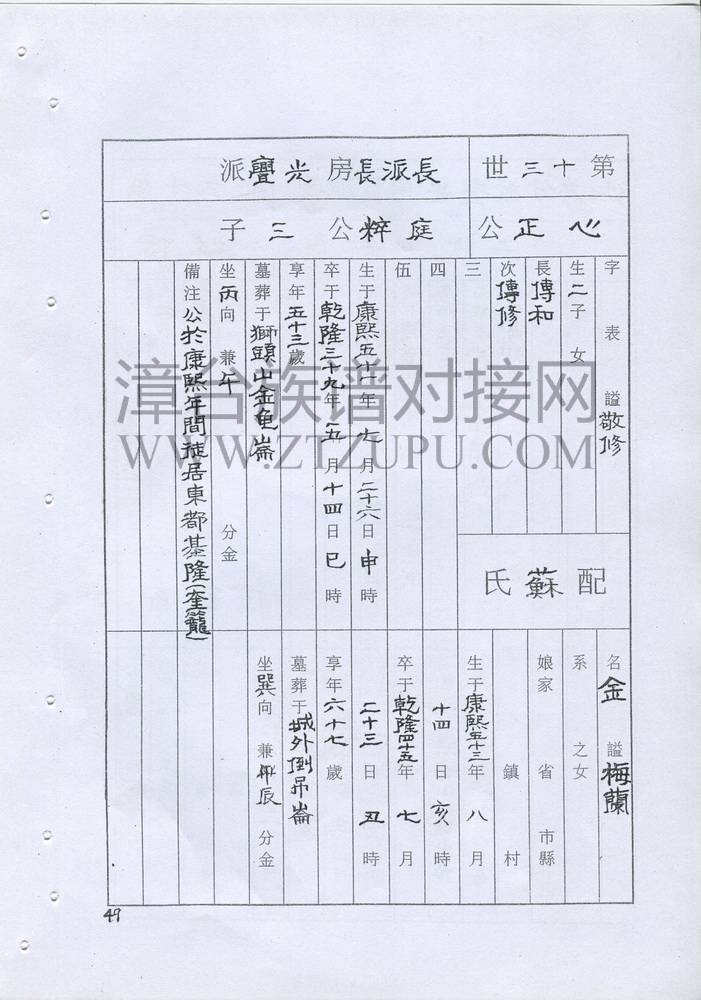 第十三世
長派長房光亹派
心正公
庭粹公三子
字 表 謚敬修
生二子 女
長傳和
次傳修
三
四
伍
生于康熙五十 年七月二十六日申時
卒于乾隆三十九年 五月十四日巳時
享年五十三歲
墓葬于獅頭山金龜崙
坐丙向 兼午 分金
備注公於康熙年間徒居東都基隆(奎籠)
配蘇氏
名金 謚梅蘭
系 之女
娘家 省 市縣
鎮 村
生于康熙五十三年八月
十四日亥時
卒于乾隆四十五年七月
二十三日丑時
享年六十七歲
墓葬于城外倒吊崙
坐巽向 兼 辰 分金
49
漳台族谱对接网
WWW.ZTZUPU.COM